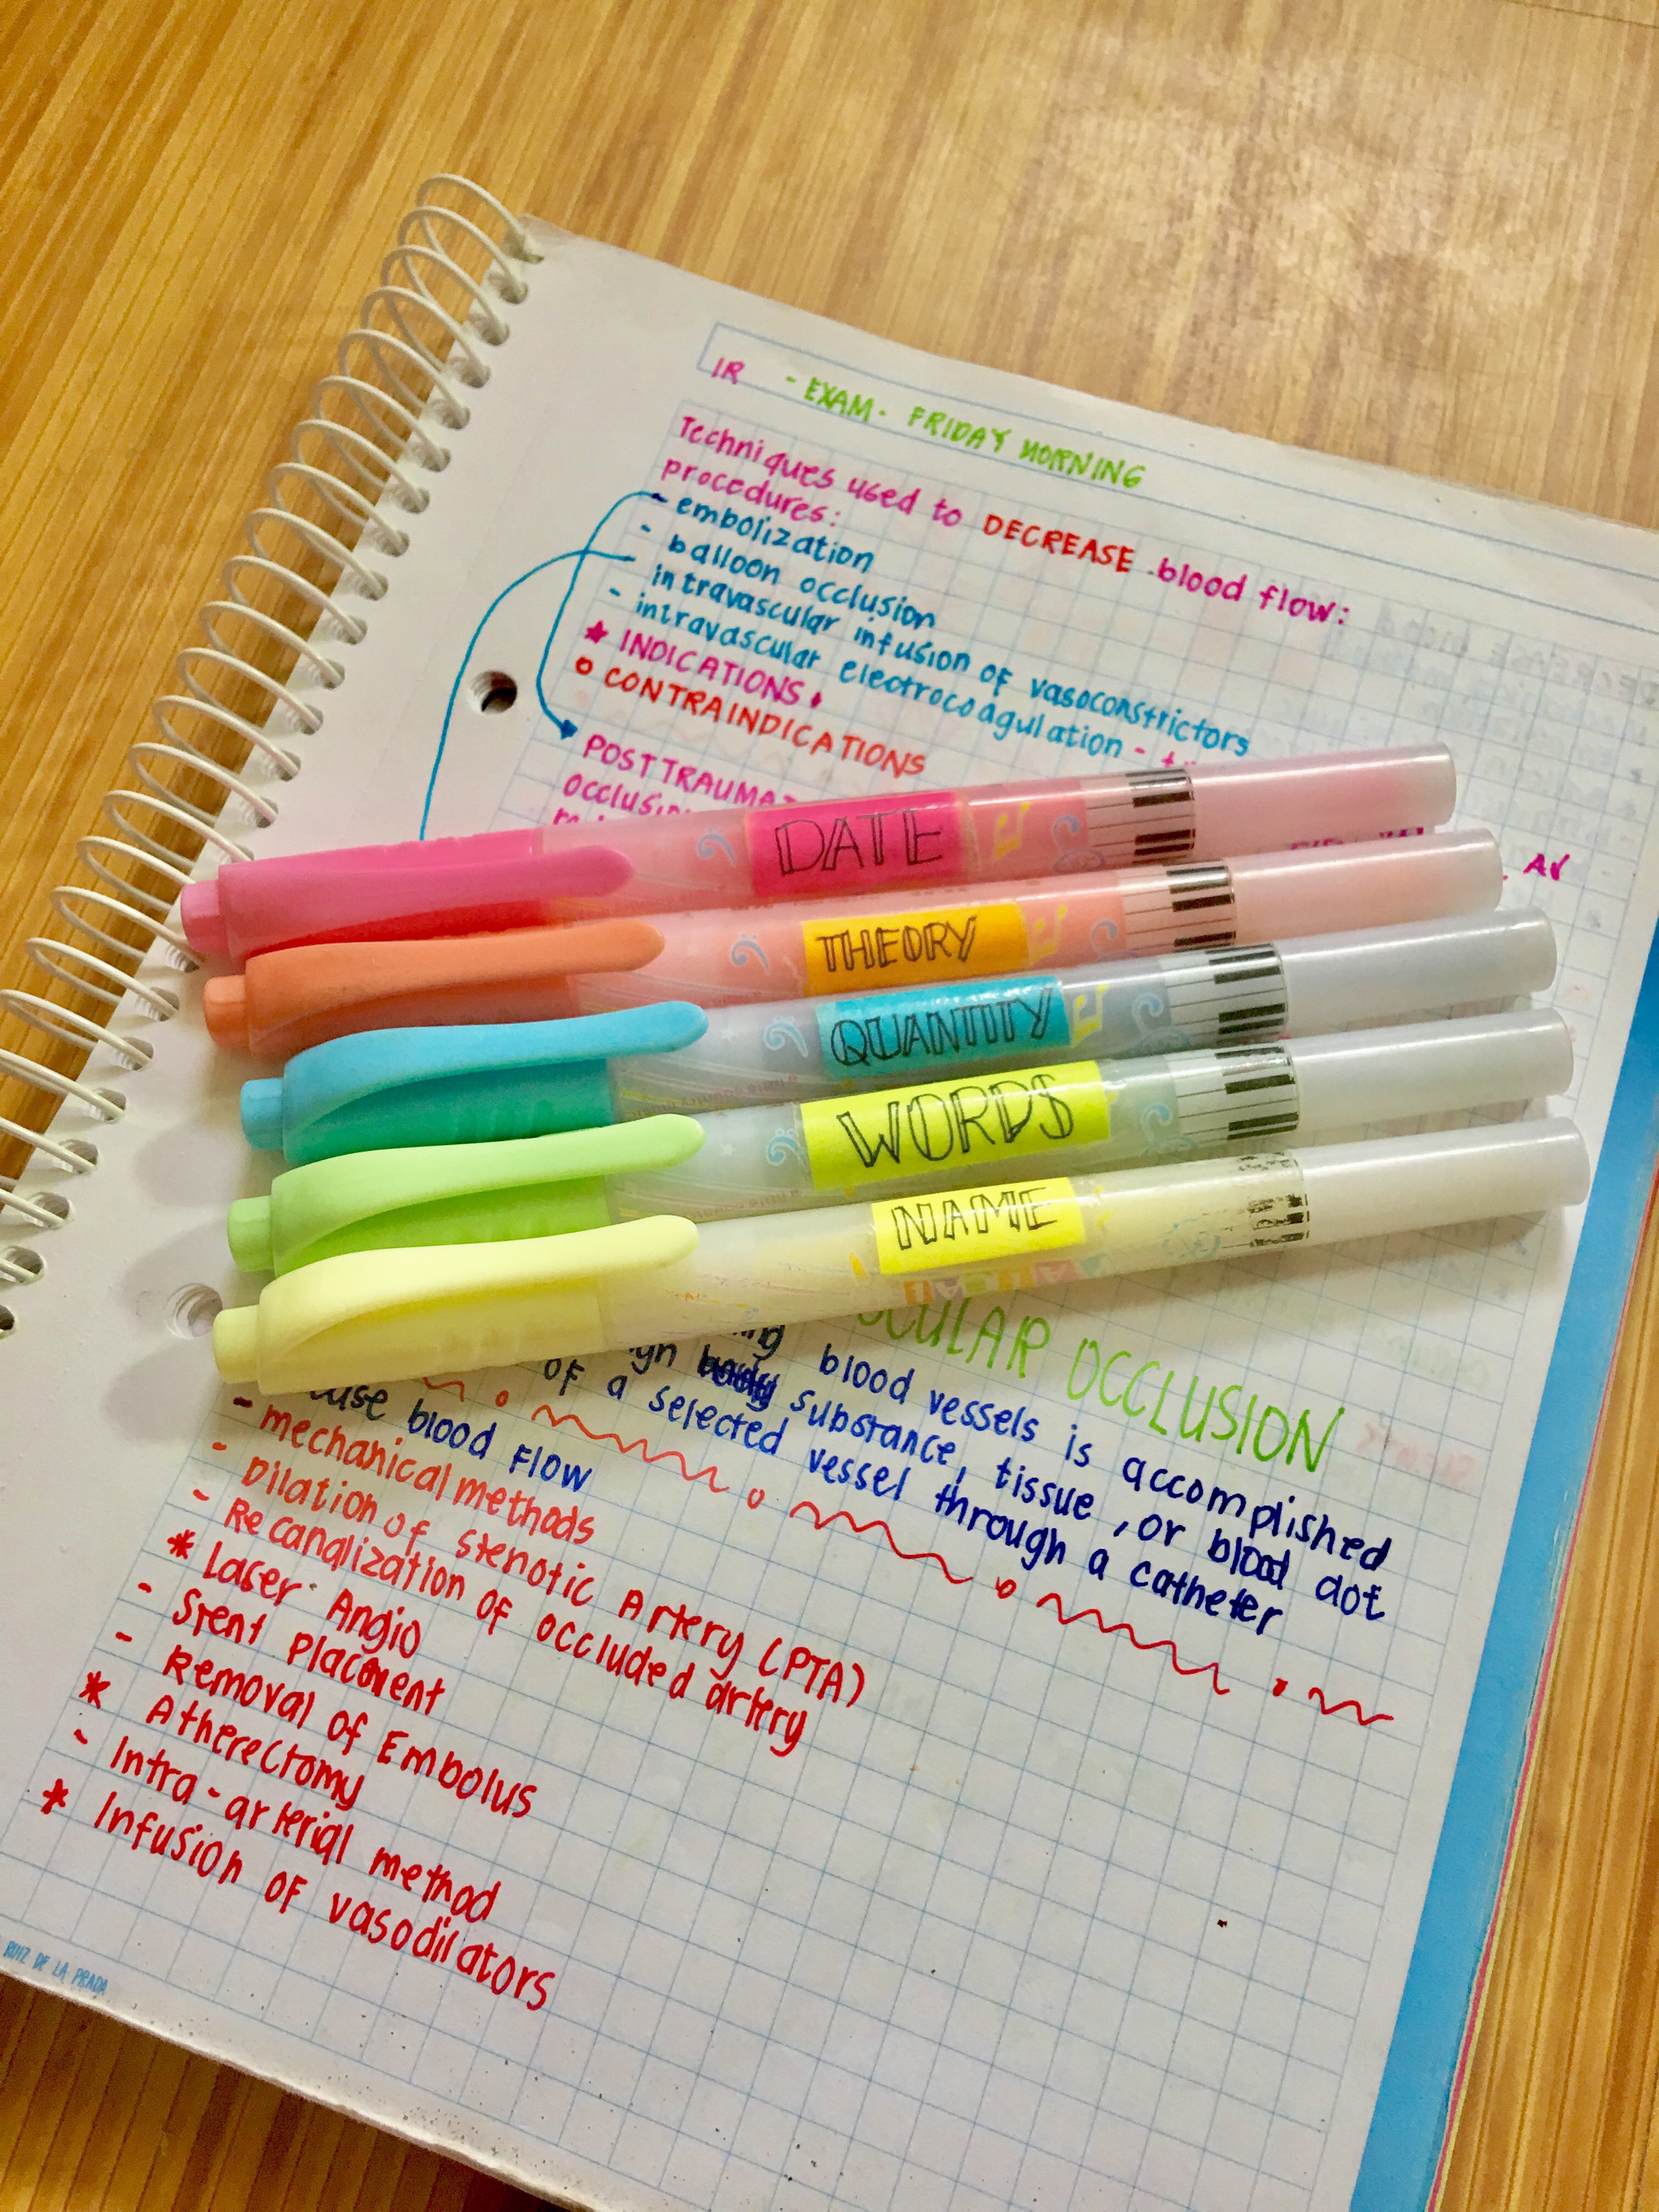 IR - EXAM - FRIDAY MORNING
Techniques used to DECREASE blood flow:
procedures:
- embolization
- balloon occlusion
- intravascular infusion of vasoconstrictors
- intravascular electrocoagulation -
* INDICATIONS
o CONTRAINDICATIONS
POSTTRAUMAT
occlusion
AV
DATE
THEORY
QUANTITY
WORDS
NAME
CULAR OCCLUSION
blood vessels is accomplished
body substance, tissue, or blood clot
of a selected vessel through a catheter
blood flow
- mechanical methods
- Dilation of stenotic Artery (PTA)
- Recanalization of occluded artery
* Laser Angio
- Stent Placment
- Removal of Embolus
* Atherectomy
- Intra-arterial method
* Infusion of vasodilators
RUIZ DE LA PRADA